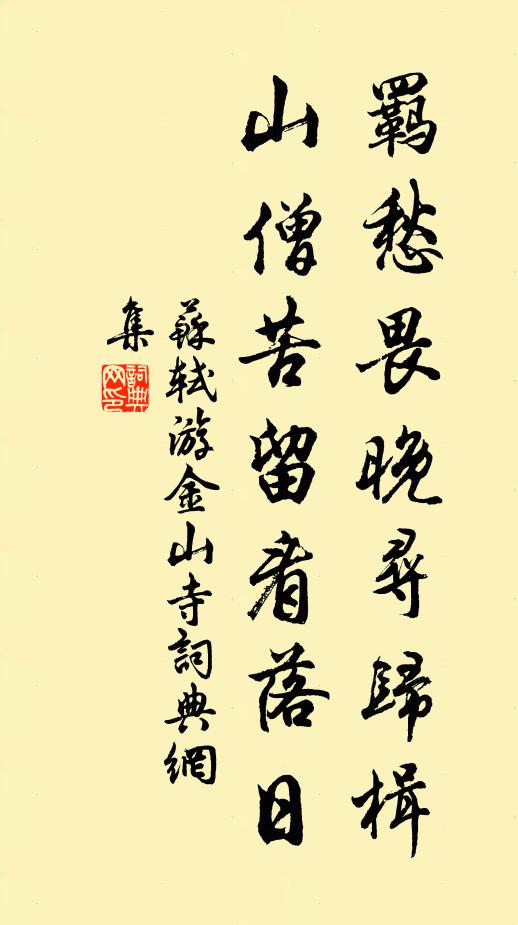 羈愁畏晚尋歸楫
山僧苦留看落日
蘇軾游金山寺詞典網
集
詞典
网印